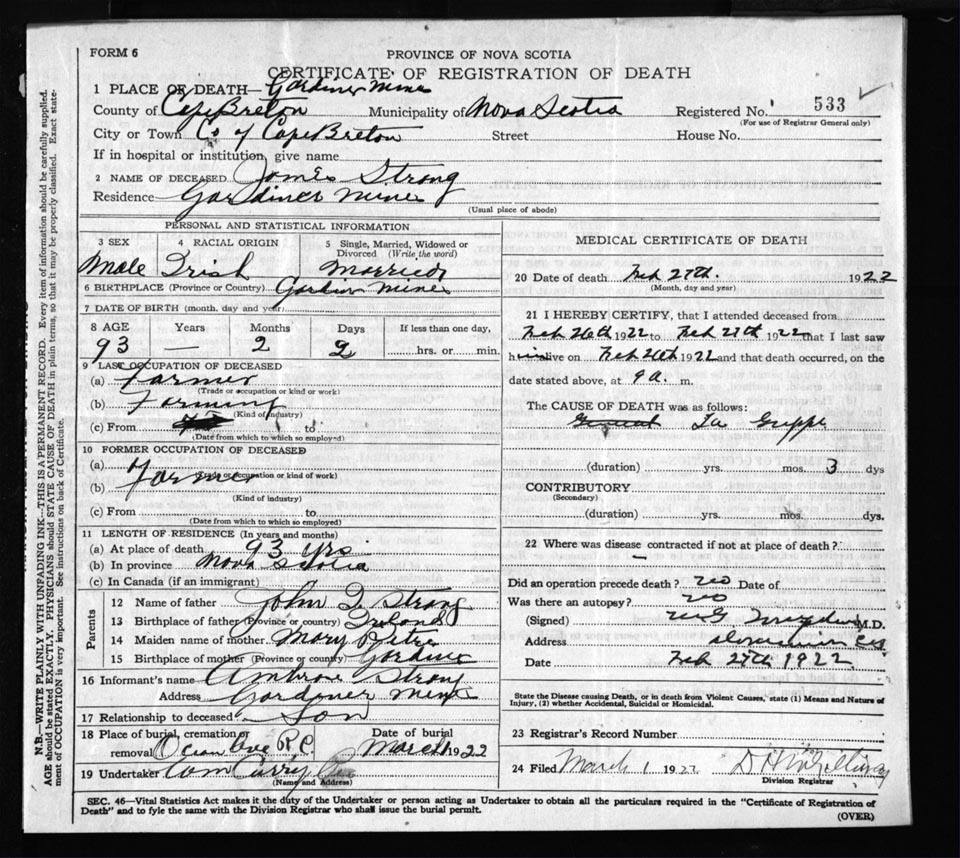 FORM 6
PROVINCE OF NOVA SCOTIA
CERTIFICATE OF REGISTRATION OF DEATH
1 PLACE OF DEATH— Gardiner Mines
County of Cape Breton Municipality of Nova Scotia Registered No. 533
(For use of Registrar General only)
City or Town Co of Cape Breton Street House No.
If in hospital or institution, give name
2 NAME OF DECEASED James Strong
Residence Gardiner Mines
(Usual place of abode)
PERSONAL AND STATISTICAL INFORMATION
3 SEX 4 RACIAL ORIGIN 5 Single, Married, Widowed or Divorced (Write the word)
Male Irish Married
6 BIRTHPLACE (Province or Country) Gardiner Mines
7 DATE OF BIRTH (month, day and year)
8 AGE Years Months Days If less than one day,
93 — 2 2 hrs. or min.
9 LAST OCCUPATION OF DECEASED
(a) Farmer
(Trade or occupation or kind of work)
(b) Farming
(Kind of industry)
(c) From to
(Date from which to which so employed)
10 FORMER OCCUPATION OF DECEASED
(a) Farmer
(Trade or occupation or kind of work)
(b)
(Kind of industry)
(c) From to
(Date from which to which so employed)
11 LENGTH OF RESIDENCE (In years and months)
(a) At place of death 93 yrs
(b) In province Nova Scotia
(c) In Canada (if an immigrant)
Parents
12 Name of father John Strong
13 Birthplace of father (Province or country) Ireland
14 Maiden name of mother Mary Petre
15 Birthplace of mother (Province or country) Gardiner
16 Informant's name Ambrose Strong
Address Gardiner Mines
17 Relationship to deceased Son
18 Place of burial, cremation or removal Date of burial
March 1922
19 Undertaker Curry
(Name and Address)
MEDICAL CERTIFICATE OF DEATH
20 Date of death Feb 27th. 1922
(Month, day and year)
21 I HEREBY CERTIFY, that I attended deceased from
Feb 26th 1922 to Feb 27th 1922 that I last saw
him alive on Feb 26th 1922 and that death occurred, on the
date stated above, at 9 a. m.
The CAUSE OF DEATH was as follows:
La Grippe
(duration) yrs. mos. 3 dys
CONTRIBUTORY
(Secondary)
(duration) yrs. mos. dys.
22 Where was disease contracted if not at place of death?
—
Did an operation precede death? no Date of
Was there an autopsy? no
(Signed) M.D.
Address
Date Feb 27th 1922
State the Disease causing Death, or in death from Violent Causes, state (1) Means and Nature of
Injury, (2) whether Accidental, Suicidal or Homicidal.
23 Registrar's Record Number
24 Filed March 1 1922
Division Registrar
SEC. 46—Vital Statistics Act makes it the duty of the Undertaker or person acting as Undertaker to obtain all the particulars required in the "Certificate of Registration of
Death" and to fyle the same with the Division Registrar who shall issue the burial permit.
(OVER)
N.B.—WRITE PLAINLY WITH UNFADING INK—THIS IS A PERMANENT RECORD. Every item of information should be carefully supplied.
AGE should be stated EXACTLY. PHYSICIANS should STATE CAUSE OF DEATH in plain terms, so that it may be properly classified. Exact state-
ment of OCCUPATION is very important. See instructions on back of Certificate.